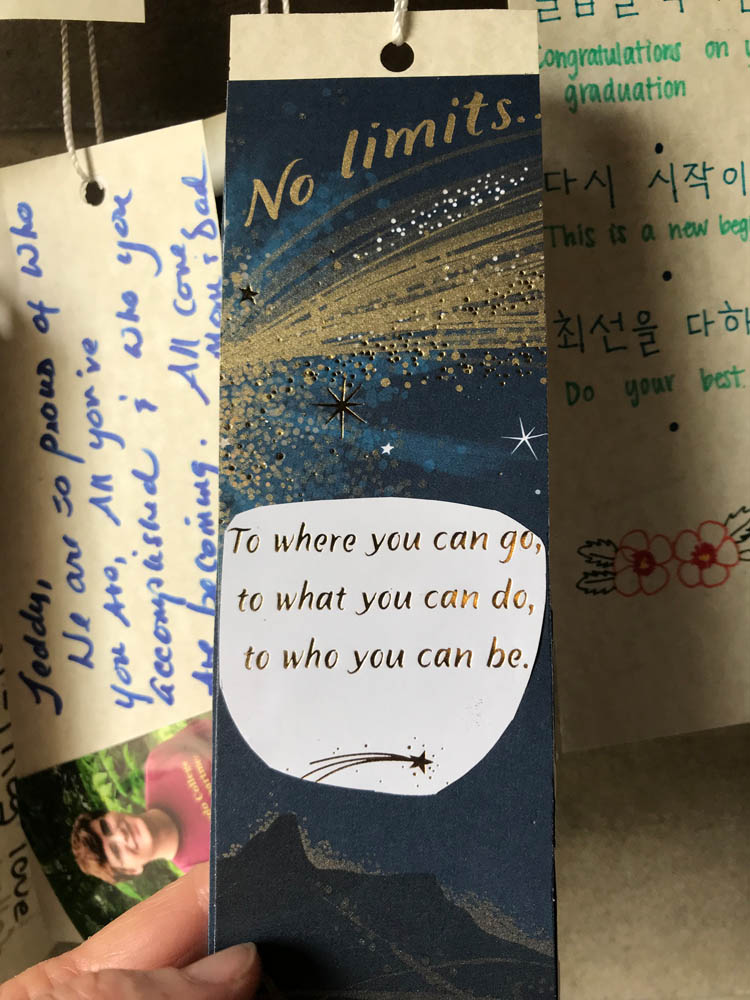 No limits..
To where you can go,
to what you can do,
to who you can be.
Teddy,
We are so proud of who
you are, All you've
accomplished & who you
Are becoming. All Love
Mom & Dad
Congratulations on
graduation
다시 시작이
This is a new beg
최선을 다하
Do your best.
love